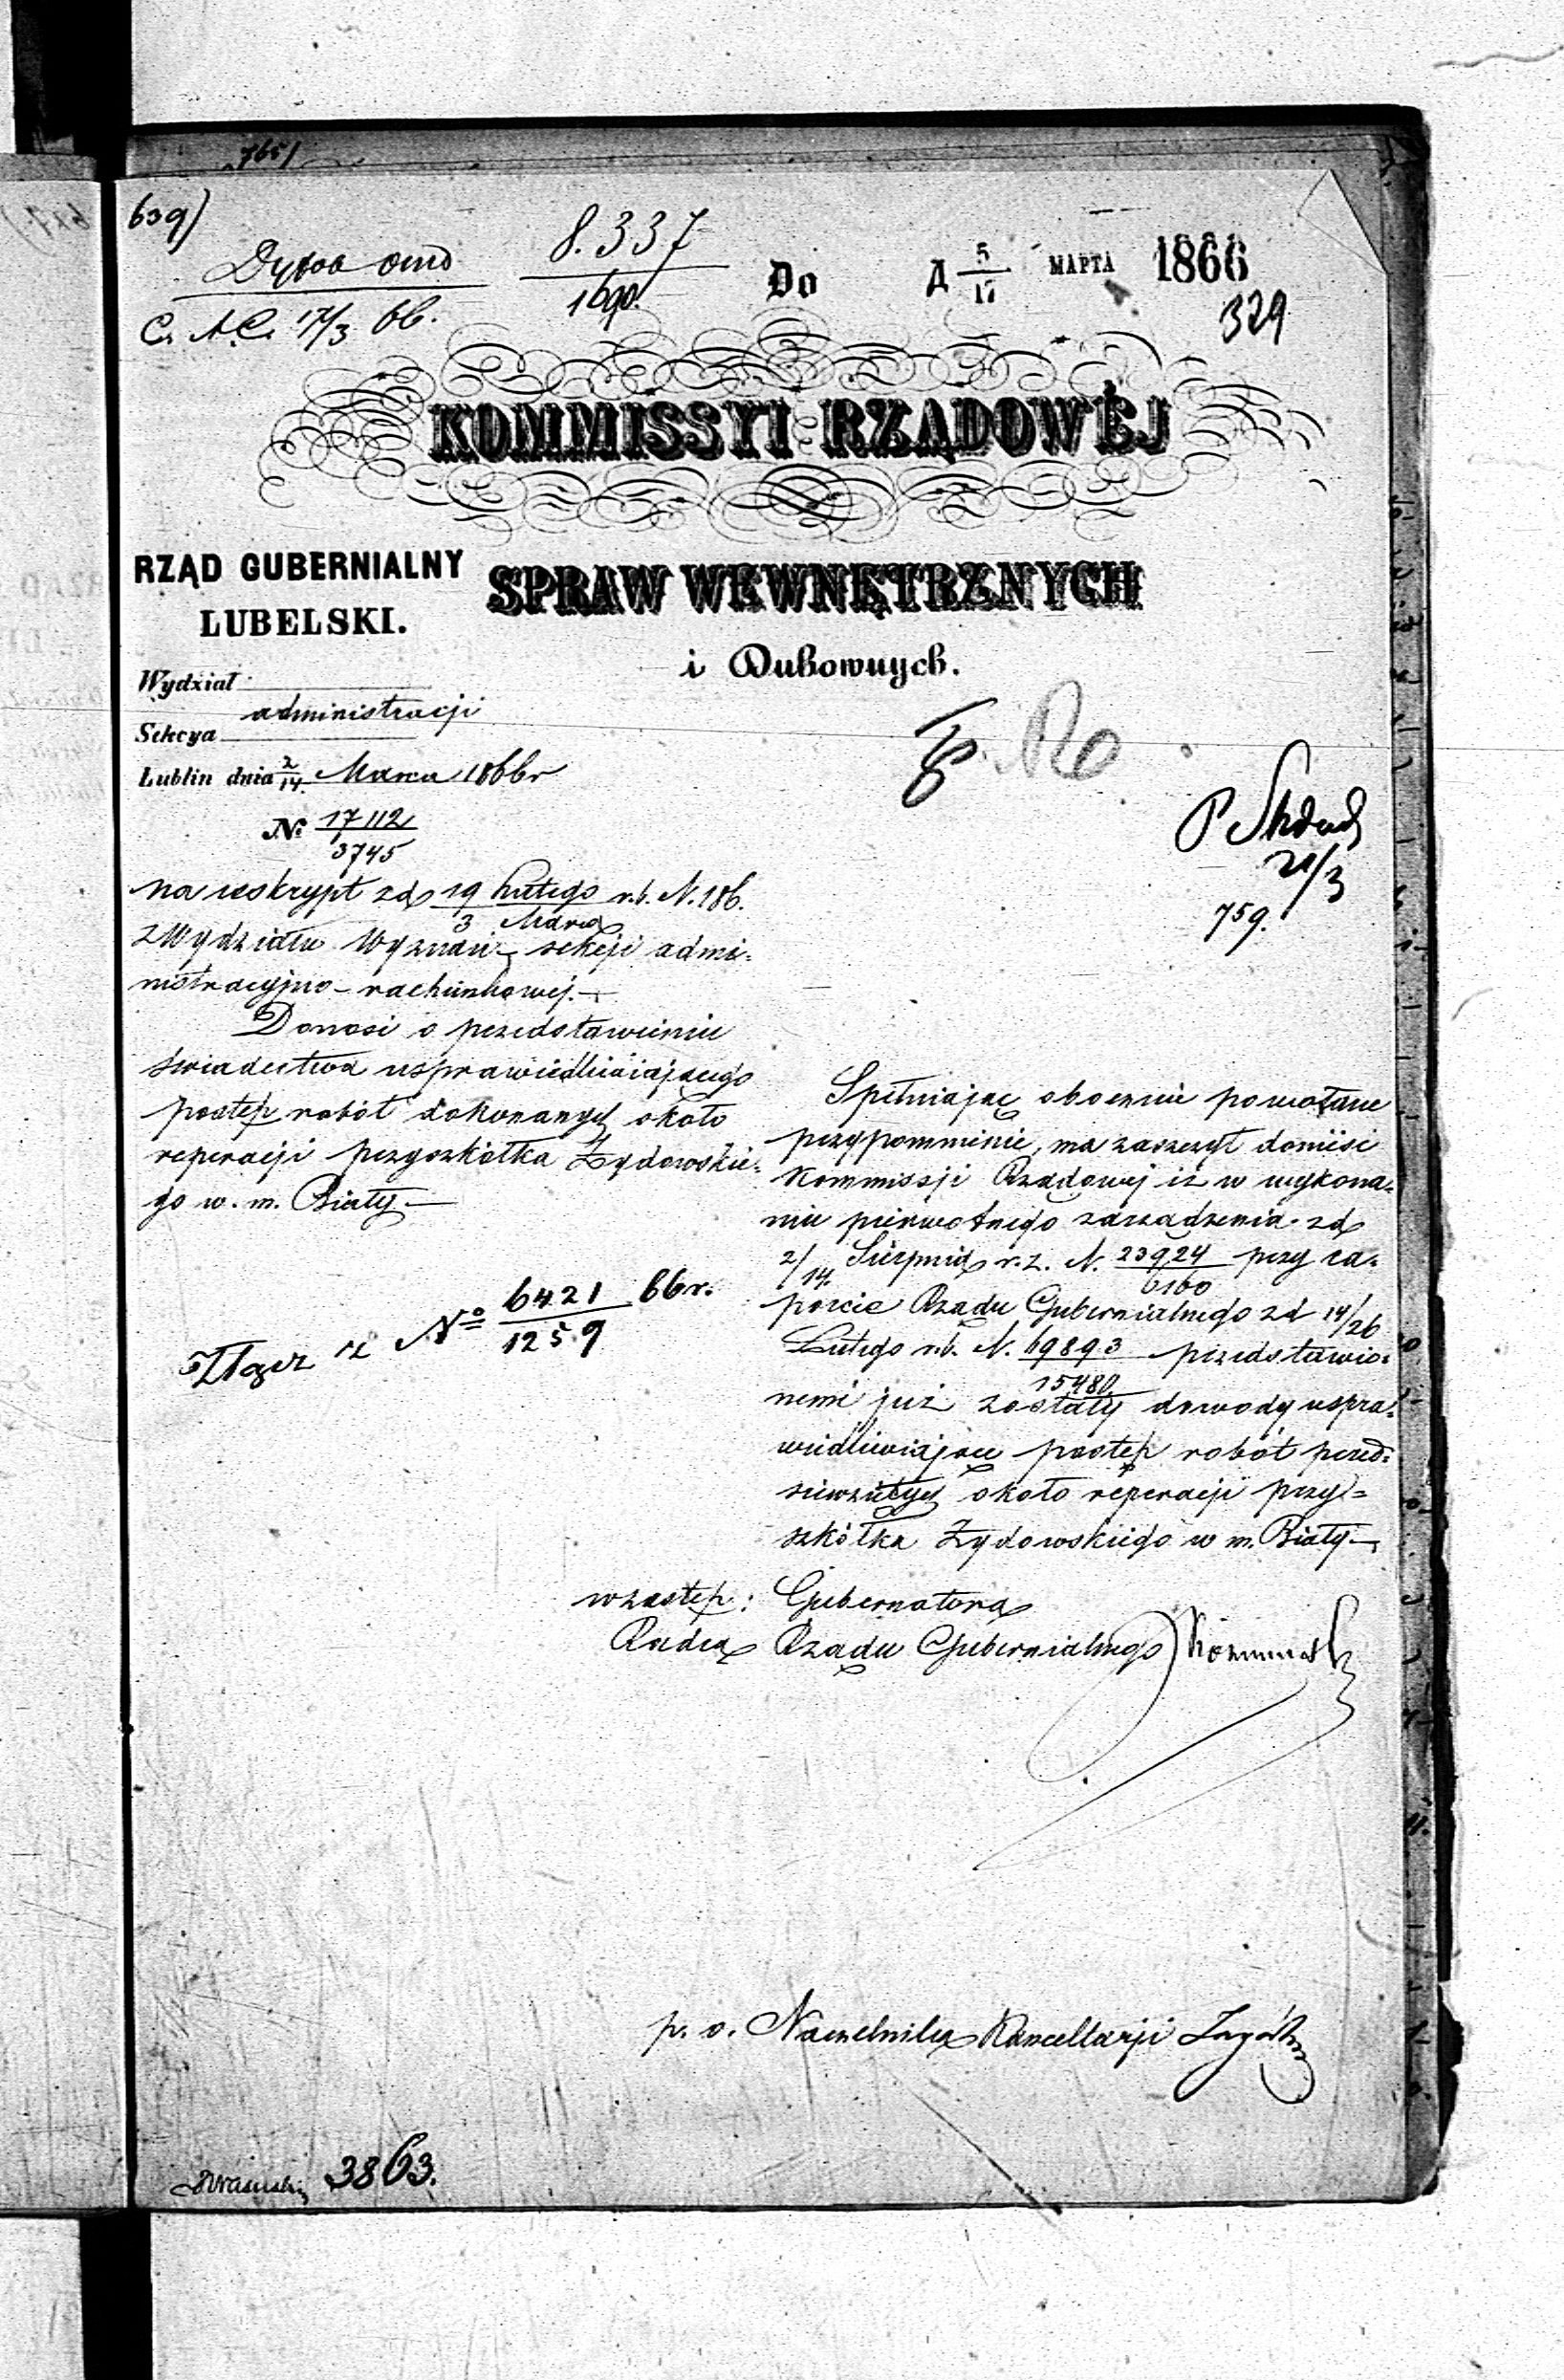 7651
639)
8.337
1690.
Do
Д 5/17 МАРТА 1866
329
17/3 66.
KOMMISSYI RZĄDOWÉJ
RZĄD GUBERNIALNY
LUBELSKI.
SPRAW WEWNĘTRZNYCH
i Duchownych.
Wydział
administracji
Sekcya
Lublin dnia 2/14 Marca 1866 r
№ 17112/3745
P
21/3
759.
na reskrypt zd 19 Lutego/3 Marca r.b. N. 186.
z Wydziału Wyznań, sekcji admi=
nistracyjno-rachunkowej.—
Donosi o przedstawieniu
świadectwa usprawiedliwiającego
postęp robót dokonanych około
reperacji przyszkółka Żydowskie=
go w. m. Biały—
№ 6421/1259 66 r.
Spełniając obocznie powołane
przypomnienie, ma zaszczyt donieść
Kommissji Rządowej iż w wykona=
niu pierwotnego zarządzenia zd
2/14 Sierpnia r. z. N. 23924/6160 przy ra=
porcie Rządu Gubernialnego zd 14/26
Lutego r.b. N. 69893/15480 przedstawio=
nemi już zostały dowody uspra=
wiedliwiające postęp robót przed=
siewziętych około reperacji przy=
szkółka Żydowskiego w m. Biały—
w zastęp: Gubernatora
Radca Rządu Gubernialnego
p. o. Naczelnika Kancellarji
3863.